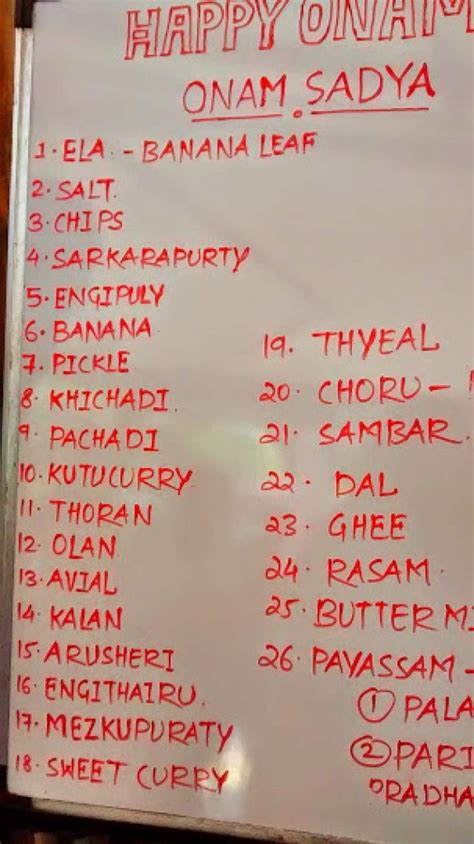 HAPPY ONAM
ONAM SADYA
1. ELA. - BANANA LEAF
2. SALT.
3. CHIPS
4. SARKARAPURTY
5. ENGIPULY
6. BANANA
7. PICKLE
8. KHICHADI.
9. PACHADI
10. KUTUCURRY
11. THORAN
12. OLAN
13. AVIAL
14. KALAN
15. ARUSHERI
16. ENGITHAIRU.
17. MEZKUPURATY
18. SWEET CURRY
19. THYEAL
20. CHORU -
21. SAMBAR.
22. DAL
23. GHEE
24. RASAM.
25. BUTTER M
26. PAYASSAM -
① PALA
② PARI
PRADHA